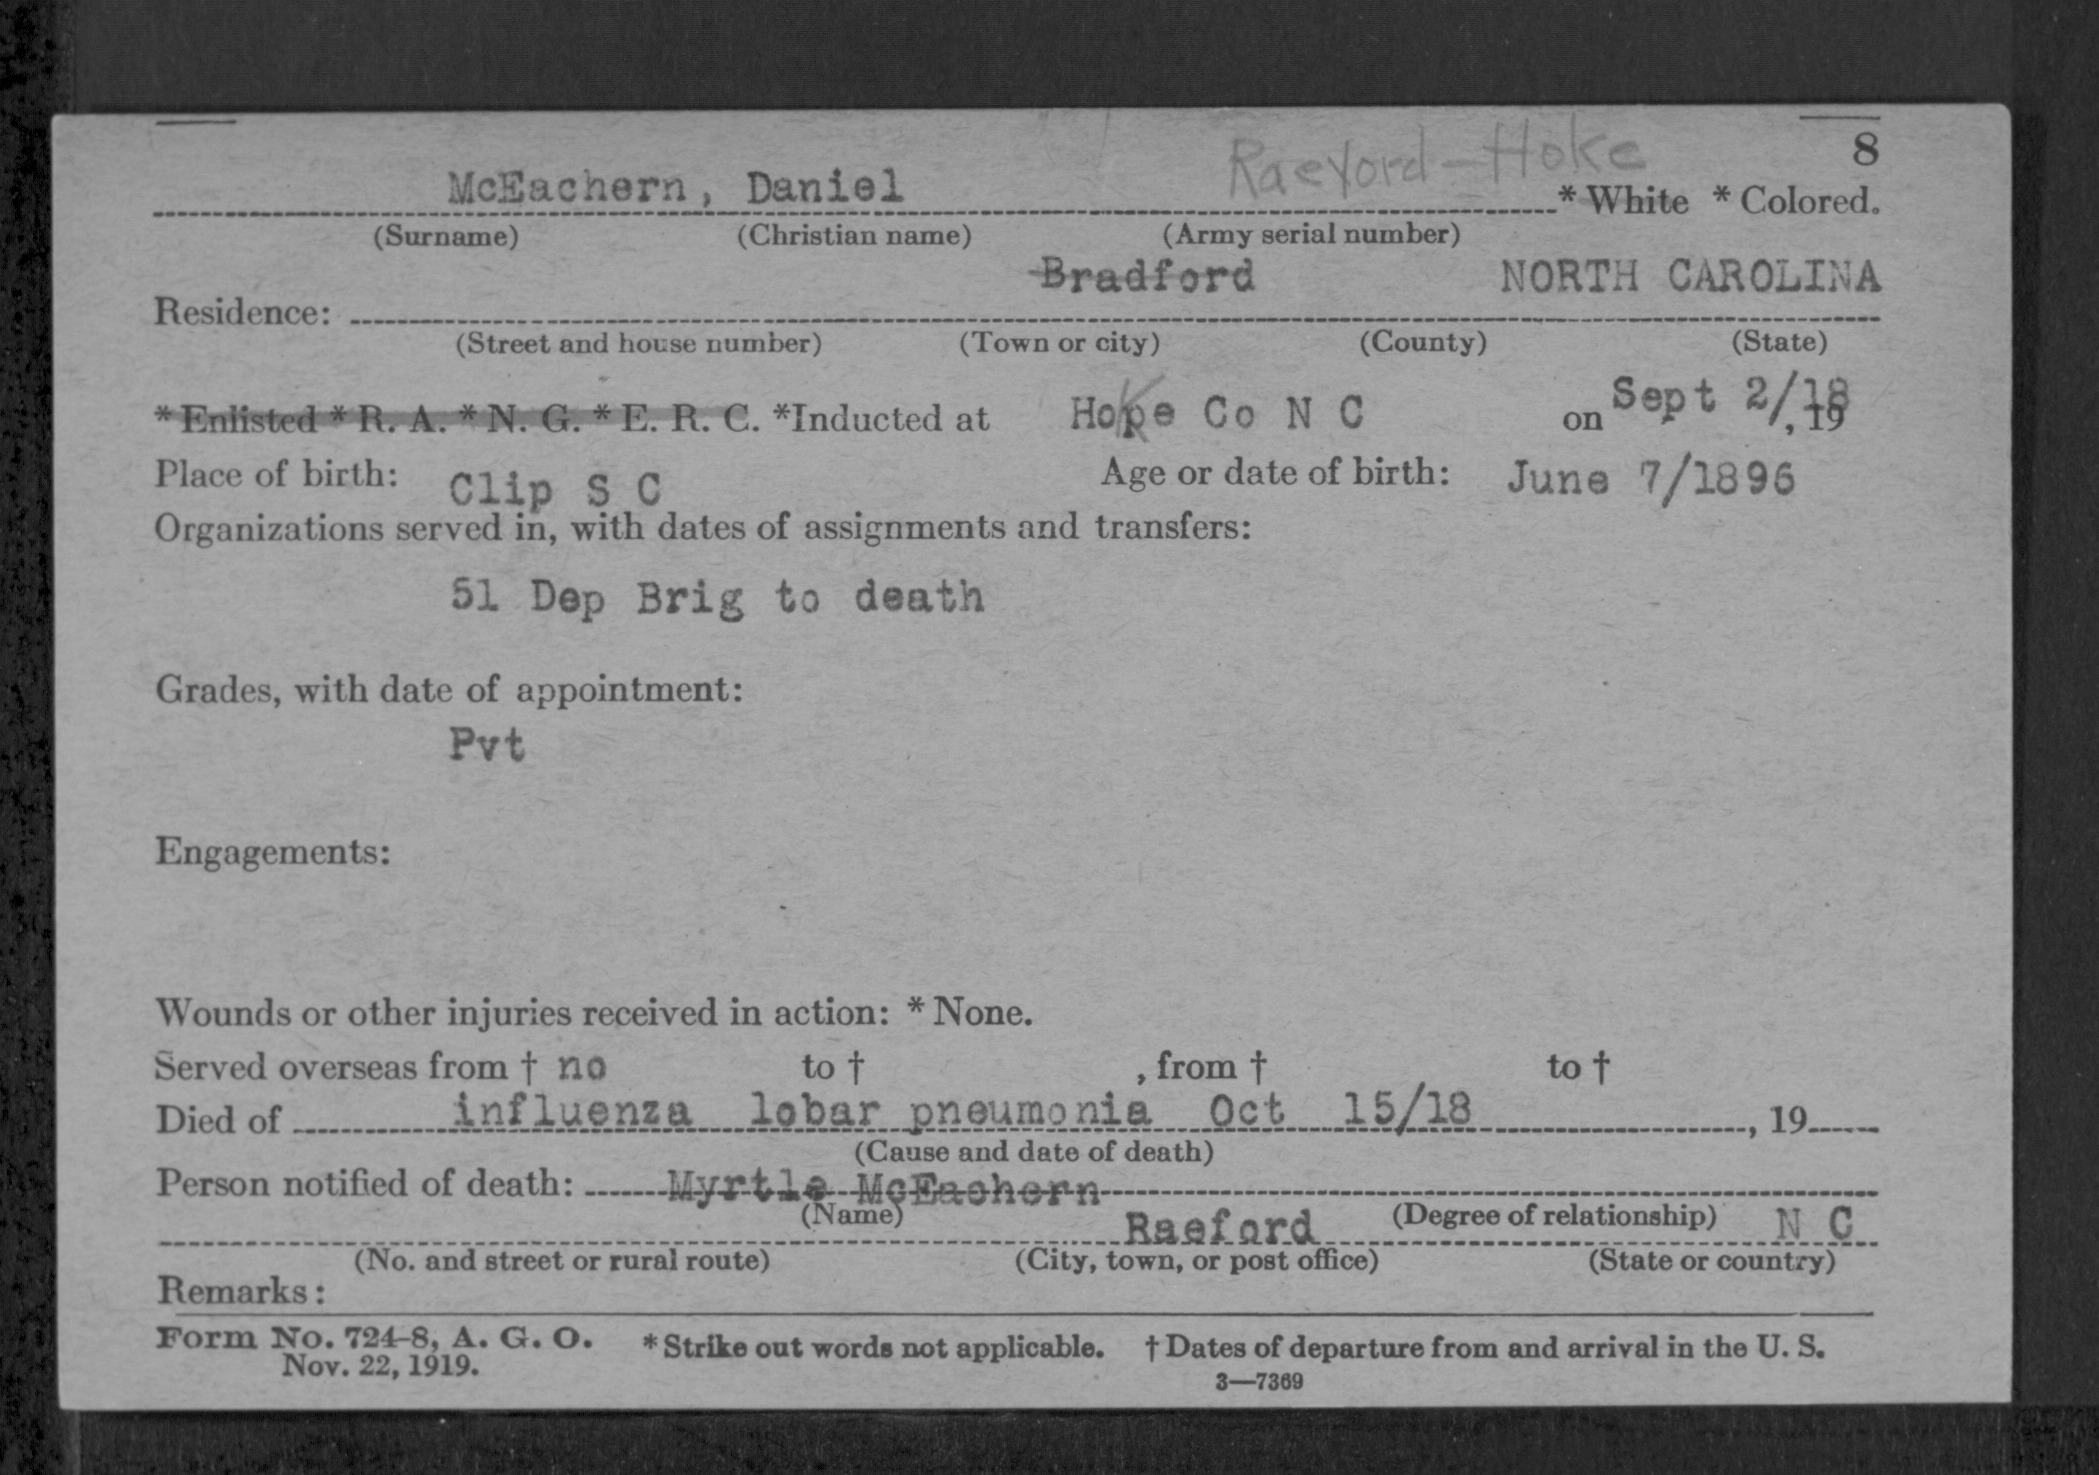 8
McEachern, Daniel Raeford - Hoke * White * Colored.
(Surname) (Christian name) (Army serial number)
Bradford NORTH CAROLINA
Residence:
(Street and house number) (Town or city) (County) (State)
* Enlisted * R. A. * N. G. * E. R. C. *Inducted at Hoke Co N C on Sept 2/18, 19
Place of birth: Clip S C Age or date of birth: June 7/1896
Organizations served in, with dates of assignments and transfers:
51 Dep Brig to death
Grades, with date of appointment:
Pvt
Engagements:
Wounds or other injuries received in action: * None.
Served overseas from † no to † , from † to †
Died of influenza lobar pneumonia Oct 15/18 , 19
(Cause and date of death)
Person notified of death: Myrtle McEachern
(Name) (Degree of relationship)
Raeford N C
(No. and street or rural route) (City, town, or post office) (State or country)
Remarks:
Form No. 724-8, A. G. O. * Strike out words not applicable. † Dates of departure from and arrival in the U. S.
Nov. 22, 1919.
3—7369